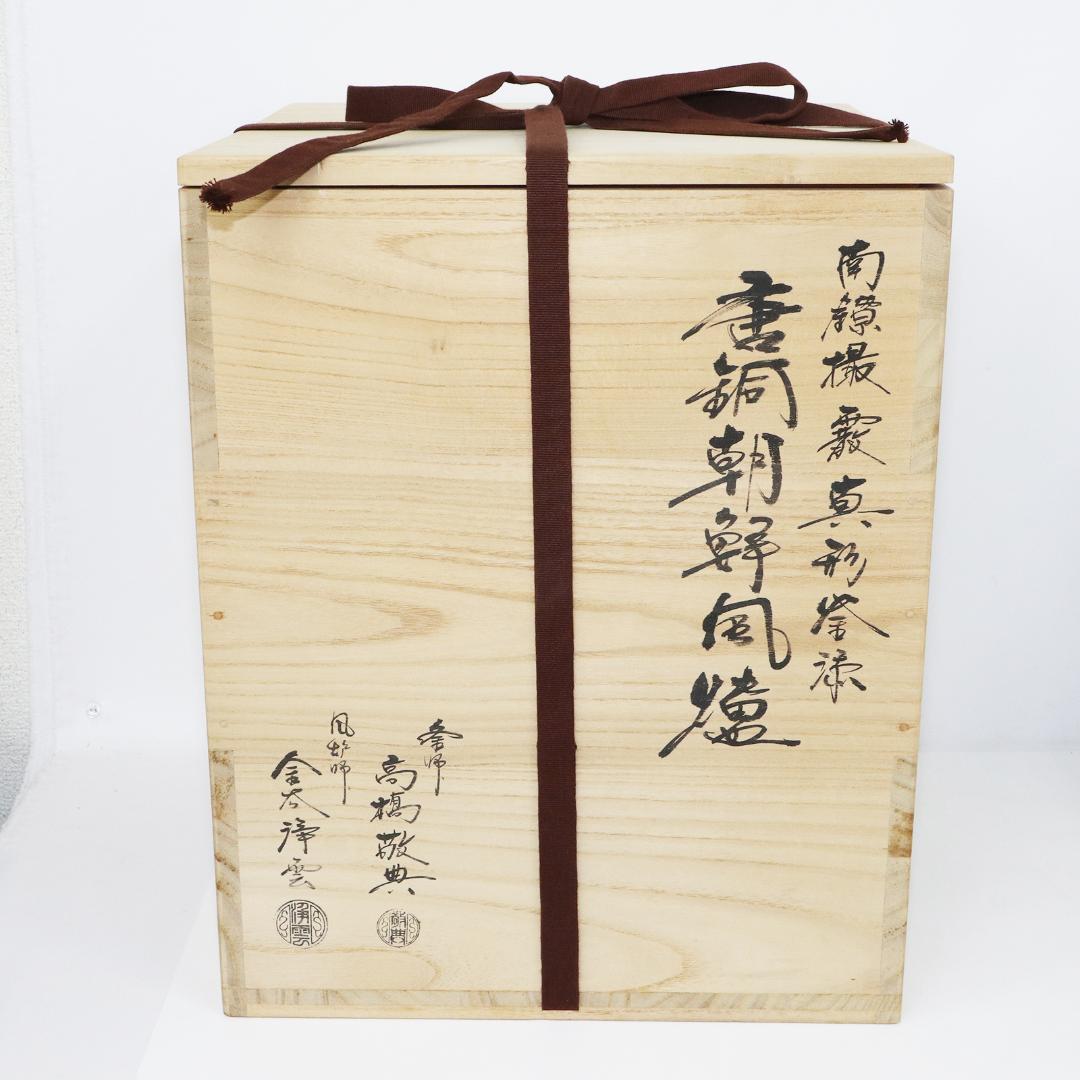 南鐐撮霰真形釜添
唐銅朝鮮風爐
釜師
高橋敬典
敬典
風炉師
金太浄雲
浄雲